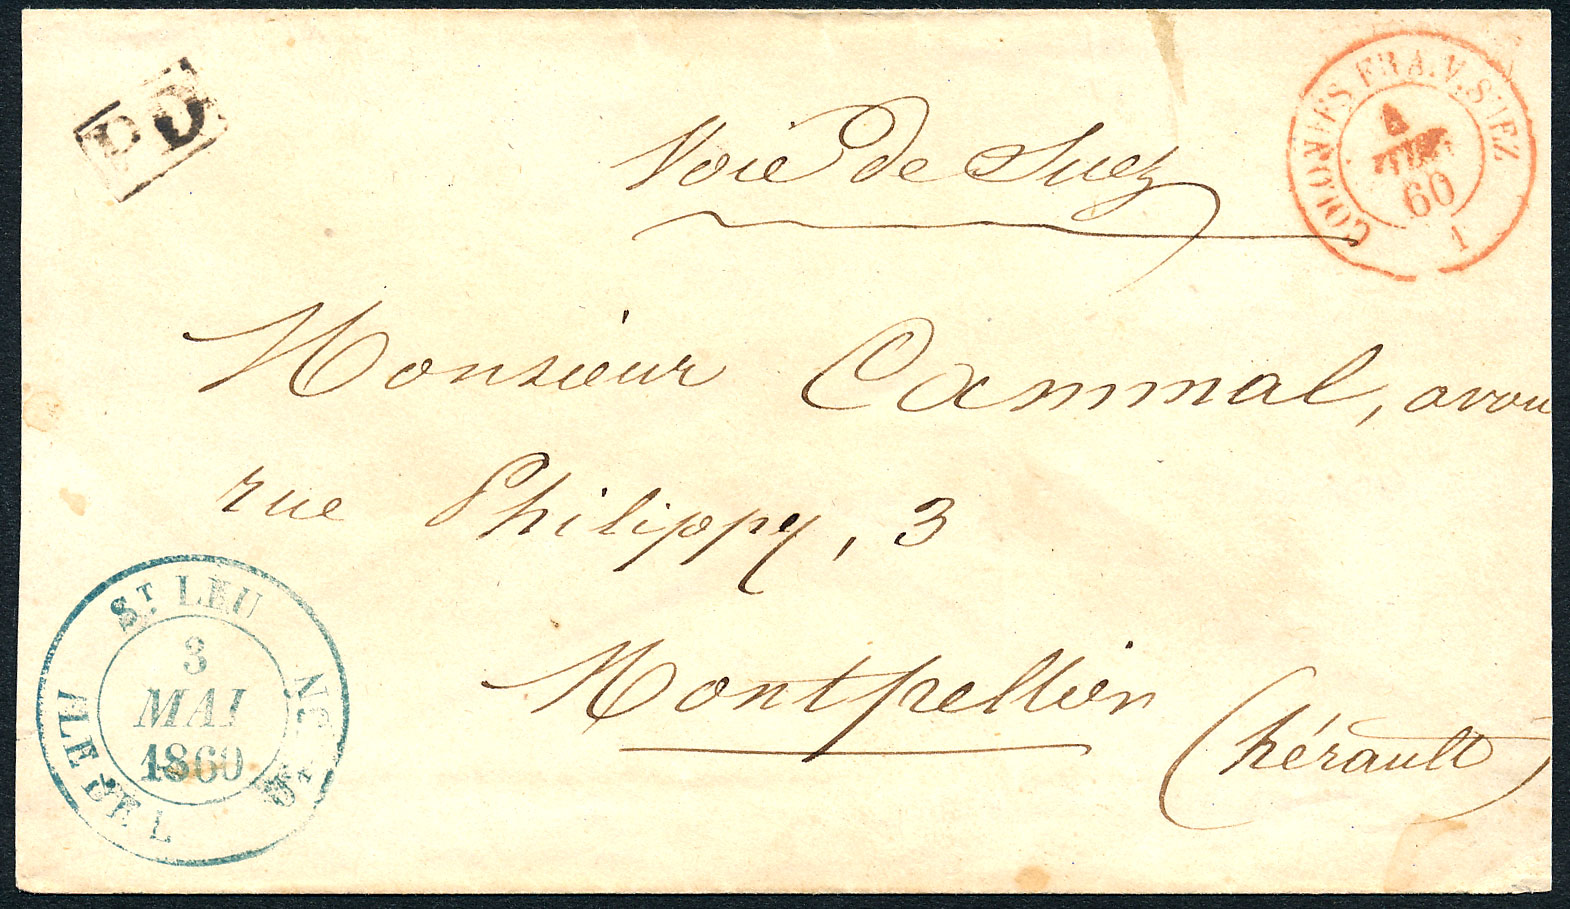 PD
COLONIES FRA. V. SUEZ
60
1
Voie de Suez
Monsieur Cammal, avou
rue Philippy, 3
Montpellier
(hérault)
ST LEU
3
MAI
1860
ILE DE L